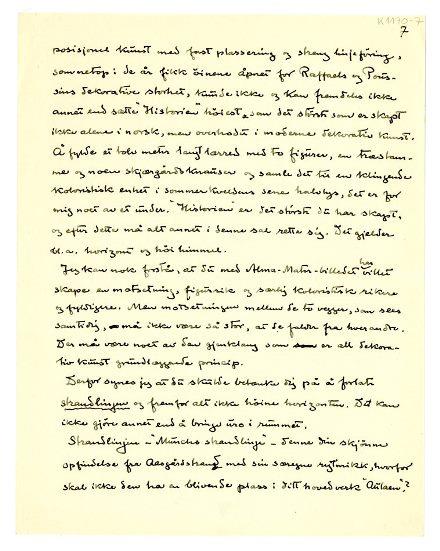 K1170-7
7
posisjonel kunst med fast plassering og streng linjeføring,
som netop i de år fikk øinene åpnet for Raffaels og Pous-
sins dekorative storhet, kunde ikke og kan fremdeles ikke
annet end sætte "Historien" høiest, som det største som er skapt
ikke alene i norsk, men overhodet i moderne dekorativ kunst.
Å fylde et tolv meter langt lærred med to figurer, en træstam-
me og noen skjærgårdsknauser og samle det til en klingende
koloristisk enhet i sommerkveldens sene halvlys, det er for
mig noet av et under. "Historien" er det største du har skapt,
og efter dette må alt annet i denne sal rette sig. Det gjelder
bl.a. horizont og høi himmel.
Jeg kan nok forstå, at du med Alma-Mater-billedet har villet
skape en motsetning, figurrik og særlig koloristisk rikere
og fyldigere. Men motsetningen mellem de to vegger, som sees
samtidig, må ikke være så stor, at de falder fra hverandre.
Der må være noet av den gjenklang som er all dekora-
tiv kunst grundlæggende princip.
Derfor synes jeg at du skulde betænke dig på å forlate
strandlinjen og fremfor alt ikke høine horizonten. Det kan
ikke gjøre annet end å bringe uro i rummet.
Strandlinjen – "Munchs strandlinje" – denne din skjønne
opfindelse fra Aasgårdstrand med sin særegne rytmikk, hvorfor
skal ikke den ha en blivende plass i ditt hovedverk "Aulaen"?